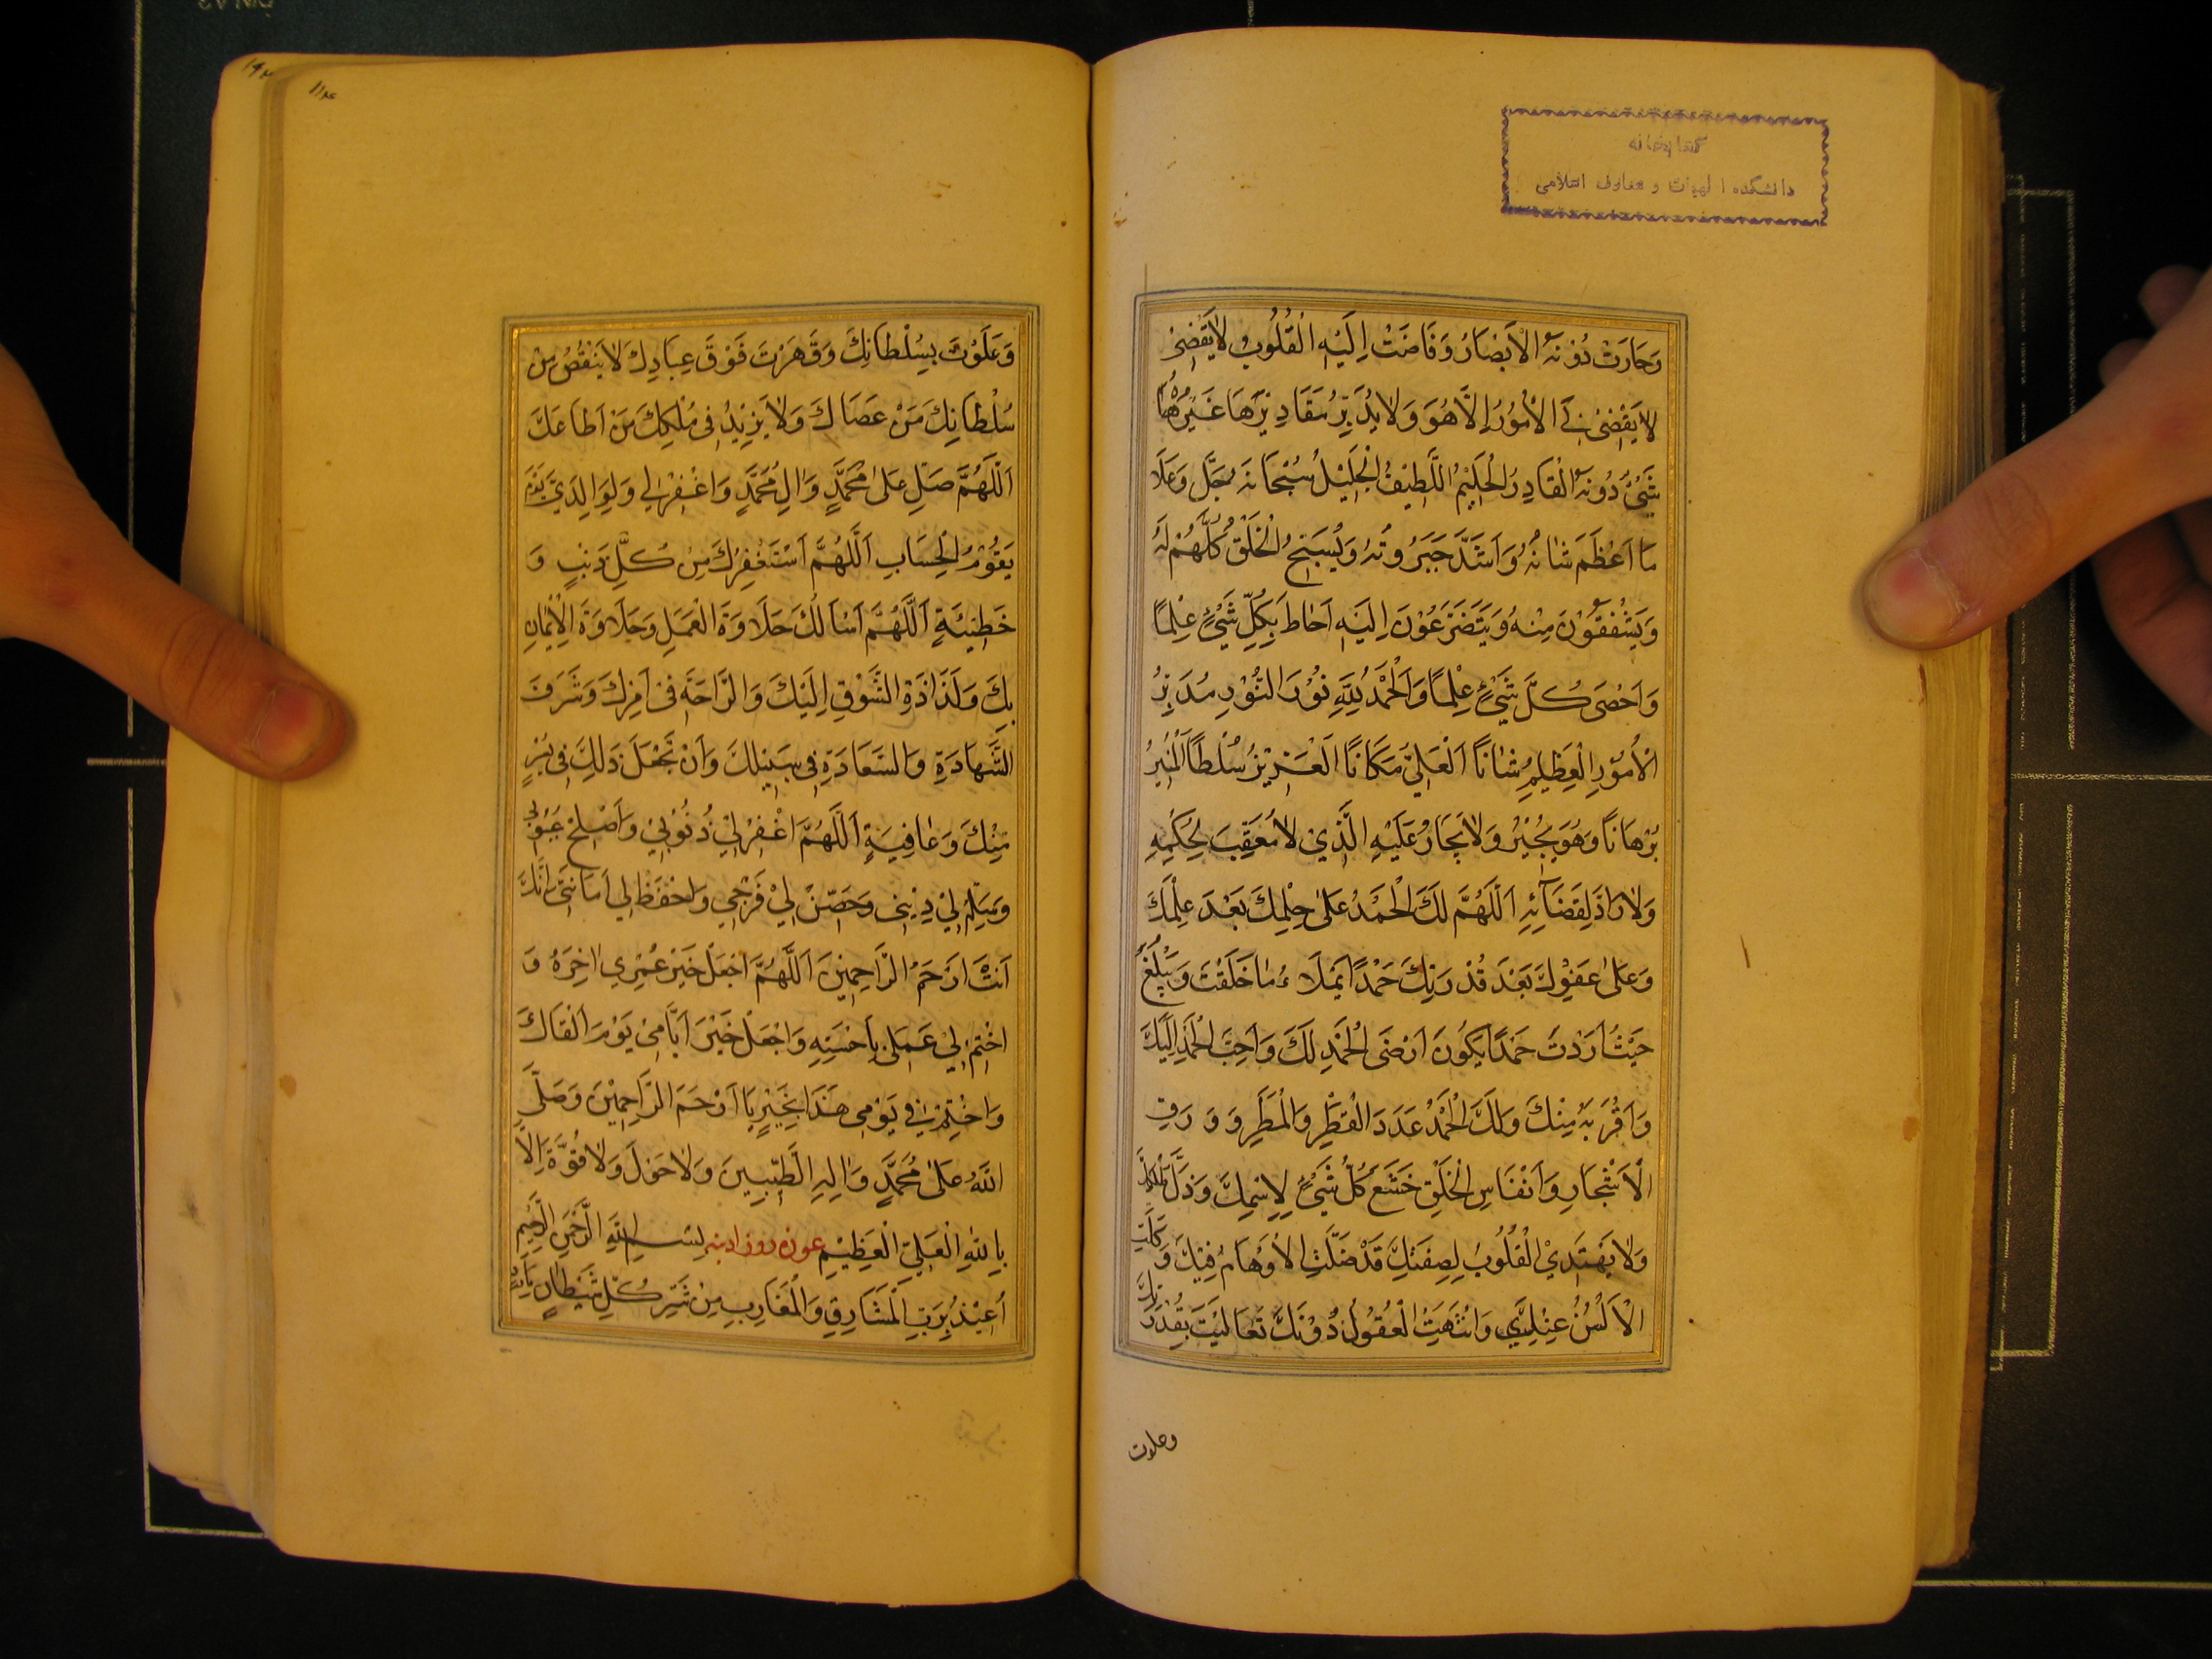 كتابخانه
دانشكده الهيات و معارف اسلامى
وَحَارَتْ دُونَهُ الْاَبْصَارُ وَفَاضَتْ اِلَيْهِ الْقُلُوبُ لَايَقْضِىْ
لَايَقْضِىْ فِى الْاُمُوْرِ اِلَّا هُوَ وَلَا يُدَبِّرُ مَقَادِيْرَهَا غَيْرُهُ
شَىْءٌ دُوْنَهُ الْقَادِرُ الْحَلِيْمُ اللَّطِيْفُ الْجَلِيْلُ سُبْحَانَهُ جَلَّ وَعَلَا
مَا اَعْظَمَ شَانُهُ وَاَشَدَّ جَبَرُوتُهُ وَيُسَبِّحُ الْخَلْقُ كُلُّهُمْ لَهُ
وَيَشْفِقُوْنَ مِنْهُ وَيَتَضَرَّعُوْنَ اِلَيْهِ اَحَاطَ بِكُلِّ شَىْءٍ عِلْمًا
وَاَحْصَى كُلَّ شَىْءٍ عِلْمًا وَالْحَمْدُ لِلّٰهِ نُوْرِ النُّوْرِ مُدَبِّرُ
الْاُمُوْرِ الْعَظِيْمِ شَانًا الْعَلِىِّ مَكَانًا الْعَزِيْزِ سُلْطَانًا الْمُنِيْرُ
بُرْهَانًا وَهُوَ يُجِيْرُ وَلَا يُجَارُ عَلَيْهِ الَّذِيْ لَا مُعَقِّبَ لِحُكْمِهِ
وَلَا رَادَّ لِقَضَائِهِ اَللّٰهُمَّ لَكَ الْحَمْدُ عَلىٰ حِلْمِكَ بَعْدَ عِلْمِكَ
وَعَلىٰ عَفْوِكَ بَعْدَ قُدْرَتِكَ حَمْدًا يَمْلَاءُ مَا خَلَقْتَ وَيَبْلُغُ
حَيْثُ اَرَدْتَ حَمْدًا يَكُوْنَ اَرْضَى الْحَمْدِ لَكَ وَاَحَبَّ الْحَمْدِ اِلَيْكَ
وَاَقْرَبَهُ مِنْكَ وَلَكَ الْحَمْدُ عَدَدَ الْقَطْرِ وَالْمَطَرِ وَ وَرَقِ
الْاَشْجَارِ وَاَنْفَاسِ الْخَلْقِ خَشَعَ كُلُّ شَىْءٍ لِاِسْمِكَ وَذَلَّ
وَلَا يَهْتَدِيْ الْقُلُوْبُ لِصِفَتِكَ قَدْ ضَلَّتِ الْاَوْهَامُ فِيْكَ وَكَلَّتِ
الْاَلْسُنُ عَنْكَ وَانْتَهَتِ الْعُقُوْلُ دُوْنَكَ تَعَالَيْتَ بِقُدْرَتِكَ
وعلوت
وَعَلَوْتَ بِسُلْطَانِكَ وَقَهَرْتَ فَوْقَ عِبَادِكَ لَا يَنْقُصُ مِنْ
سُلْطَانِكَ مَنْ عَصَاكَ وَلَا يَزِيْدُ فِى مُلْكِكَ مَنْ اَطَاعَكَ
اَللّٰهُمَّ صَلِّ عَلىٰ مُحَمَّدٍ وَاٰلِ مُحَمَّدٍ وَاغْفِرْ لِي وَلِوَالِدَيَّ يَوْمَ
يَقُوْمُ الْحِسَابِ اَللّٰهُمَّ اَسْتَغْفِرُكَ مِنْ كُلِّ ذَنْبٍ وَ
خَطِيْئَةٍ اَللّٰهُمَّ اَسْاَلُكَ حَلَاوَةَ الْعَمَلِ وَحَلَاوَةَ الْاِيْمَانِ
بِكَ وَلَذَاذَةَ الشَّوْقِ اِلَيْكَ وَالرَّاحَةَ فِىْ اَمْرِكَ وَشَرَفَ
الشَّهَادَةِ وَالسَّعَادَةِ فِى سَبِيْلِكَ وَاَنْ تَجْعَلَ ذَلِكَ فِى يُسْرٍ
مِنْكَ وَعَافِيَةٍ اَللّٰهُمَّ اغْفِرْ لِيْ ذُنُوْبِيْ وَاَصْلِحْ عُيُوْبِيْ
وَسَلِّمْ لِيْ دِيْنِى وَحَصِّنْ لِيْ فَرْجِي وَاحْفَظْ لِي اَمَانَتِى اِنَّكَ
اَنْتَ اَرْحَمُ الرَّاحِمِيْنَ اَللّٰهُمَّ اجْعَلْ خَيْرَ عُمْرِي اٰخِرَهُ وَ
اخْتِمْ لِيْ عَمَلِى بِاَحْسَنِهِ وَاجْعَلْ خَيْرَ اَيَّامِىْ يَوْمَ اَلْقَاكَ
وَاخْتِمْ لِيْ فِى يَوْمِى هَذَا بِخَيْرٍ يَا اَرْحَمَ الرَّاحِمِيْنَ وَصَلَّى
اللّٰهُ عَلىٰ مُحَمَّدٍ وَاٰلِهِ الطَّيِّبِيْنَ وَلَا حَوْلَ وَلَا قُوَّةَ اِلَّا
بِاللّٰهِ الْعَلِيِّ الْعَظِيْمِ عوذه روز ادينه بِسْمِ اللّٰهِ الرَّحْمٰنِ الرَّحِيْمِ
اُعِيْذُ بِرَبِّ الْمَشَارِقِ وَالْمَغَارِبِ مِنْ شَرِّ كُلِّ شَيْطَانٍ مَارِدٍ